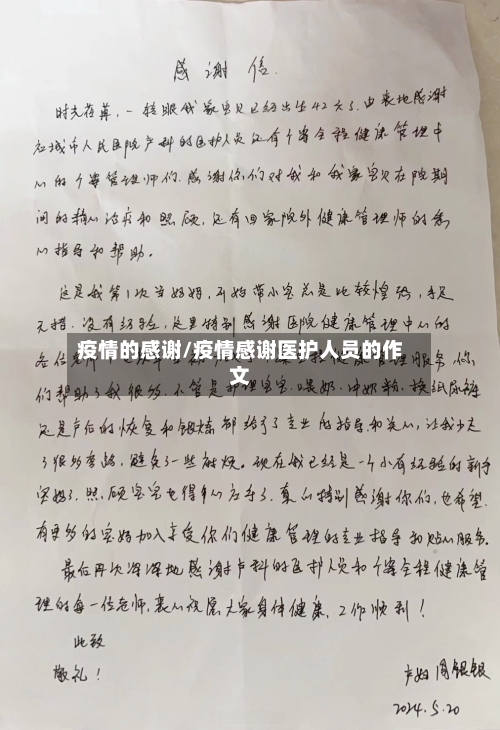 感谢信
时光荏苒，一转眼我家宝贝已经出生42天了.由衷地感谢
应城市人民医院产科的医护人员还有个案全程健康管理中
心的个案管理师们.感谢你们对我和我家宝贝在院期
间的精心治疗和照顾,还有回家院外健康管理师的悉
心指导和帮助。
这是我第1次当妈妈,刚开始带小宝总是比较慌张,手足
无措.没有经验,这里特别感谢医院健康管理中心的
疫情的感谢/疫情感谢医护人员的作
文
各位老师
管理服务,你
们帮助了我很多.不管是护理宝宝.喂奶.冲奶粉.换纸尿裤
还是产后的恢复和锻炼都给予了专业的指导和关心,让我少走
了很多弯路,避免了一些麻烦。现在我已经是一个小有经验的新手
宝妈了.照顾宝宝也得心应手了.真的特别感谢你们,也希望
有更多的宝妈加入享受你们健康管理的专业指导和贴心服务.
最后再次深深地感谢产科的医护人员和个案全程健康管
理的每一位老师,衷心祝愿大家身体健康,工作顺利！
此致
敬礼！
产妇周银银
2024.5.20